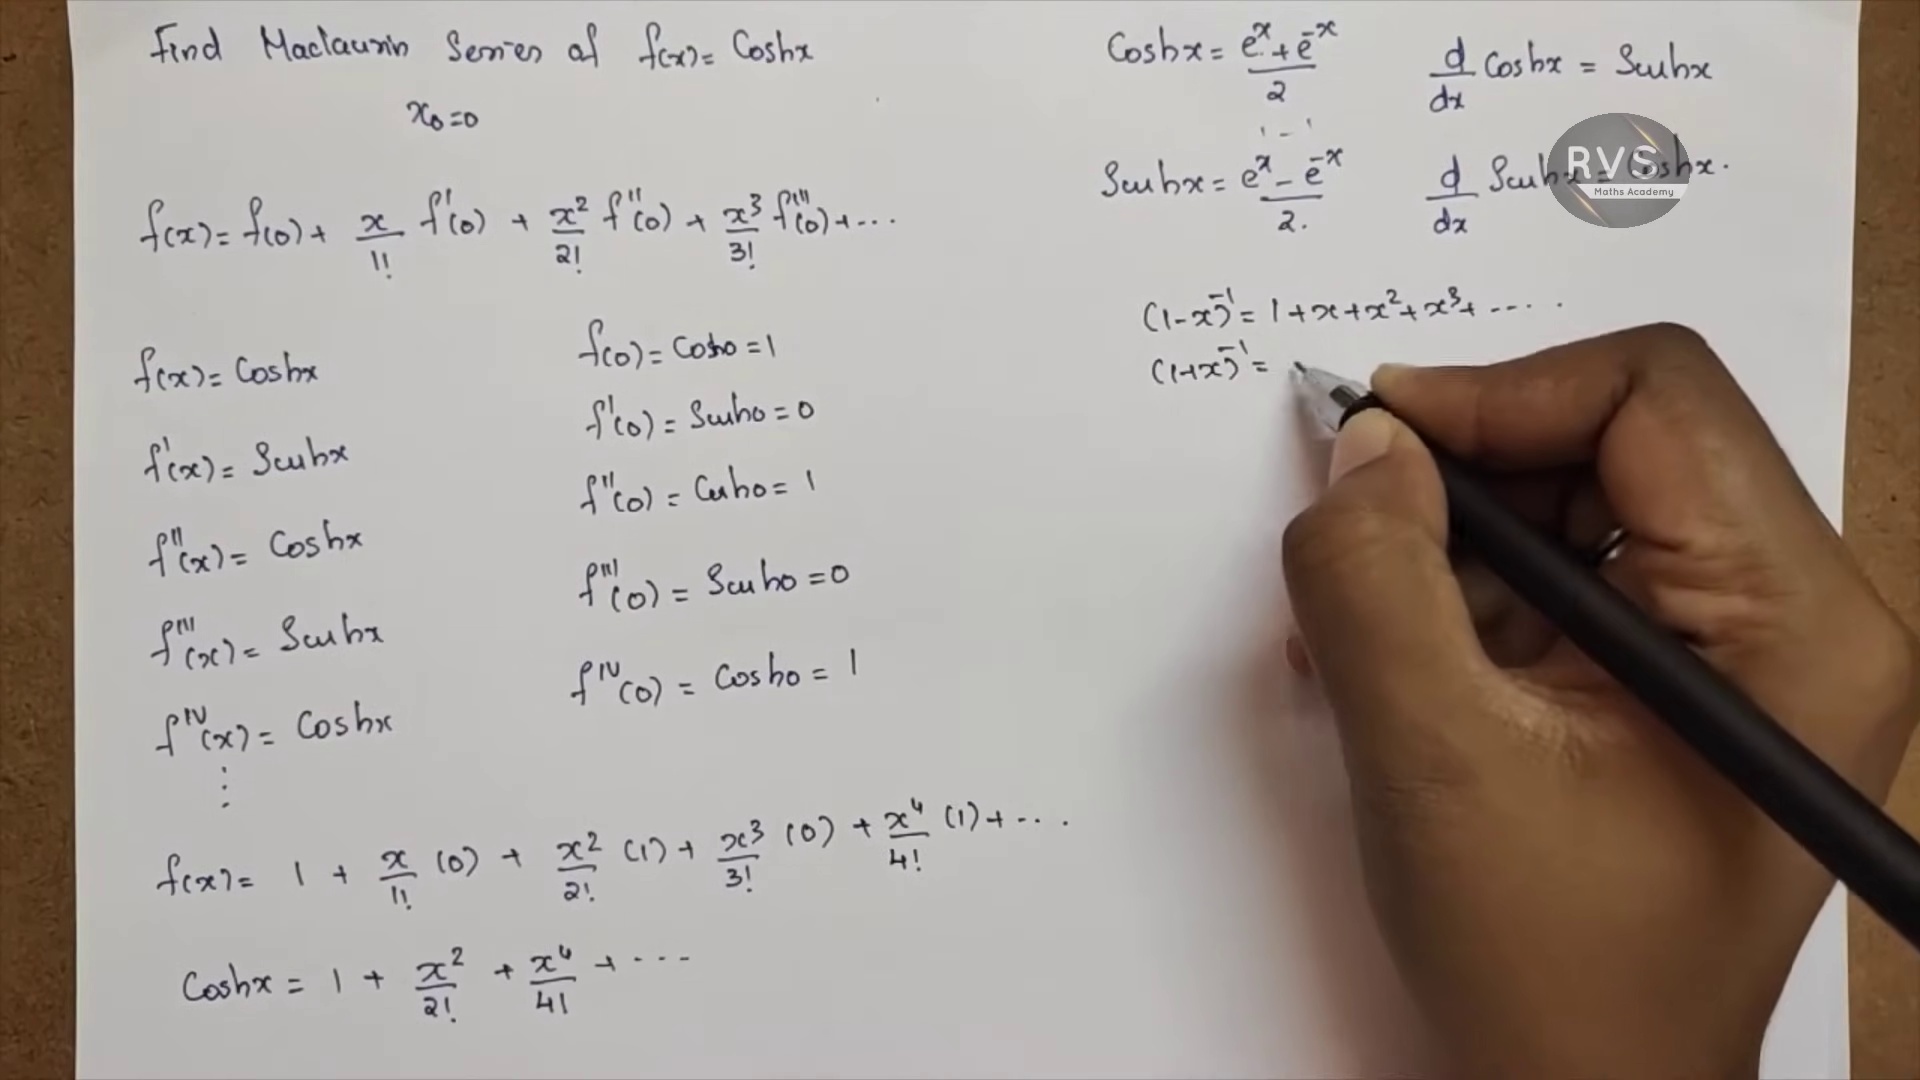 Find Maclaurin Series of f(x) = Coshx
x₀=0
f(x) = f(0) + x/1! f'(0) + x²/2! f''(0) + x³/3! f'''(0) + ...
f(x) = Coshx
f'(x) = Sinhx
f''(x) = Coshx
f'''(x) = Sinhx
f^IV(x) = Coshx
⋮
f(0) = Cosh0 = 1
f'(0) = Sinh0 = 0
f''(0) = Cosh0 = 1
f'''(0) = Sinh0 = 0
f^IV(0) = Cosh0 = 1
f(x) = 1 + x/1! (0) + x²/2! (1) + x³/3! (0) + x⁴/4! (1) + ...
Coshx = 1 + x²/2! + x⁴/4! + ...
Coshx = (e^x + e^-x)/2
d/dx Coshx = Sinhx
Sinhx = (e^x - e^-x)/2.
d/dx Sinhx = Coshx.
RVS
Maths Academy
(1-x)^-1 = 1+x+x²+x³+ ....
(1+x)^-1 =